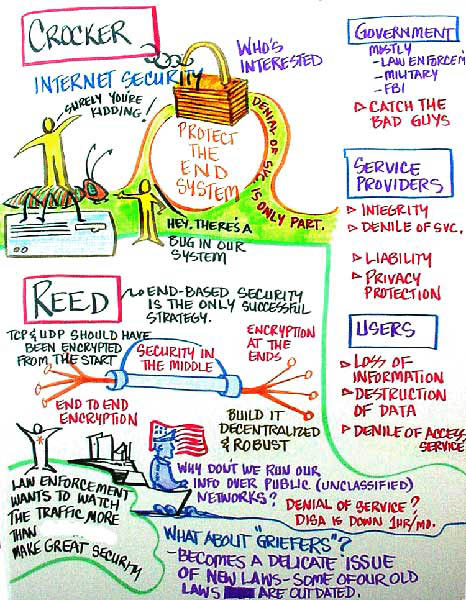 CROCKER
INTERNET SECURITY
SURELY YOU'RE
KIDDING!
WHO'S
INTERESTED
PROTECT
THE
END
SYSTEM
DENIAL OF SVC. IS ONLY PART.
HEY, THERE'S A
BUG IN OUR
SYSTEM
GOVERNMENT
MOSTLY
-LAW ENFORCEM
-MILITARY
-FBI
CATCH THE
BAD GUYS
SERVICE
PROVIDERS
INTEGRITY
DENILE OF SVC.
LIABILITY
PRIVACY
PROTECTION
USERS
LOSS OF
INFORMATION
DESTRUCTION
OF DATA
DENILE OF ACCESS
SERVICE
REED
END-BASED SECURITY
IS THE ONLY SUCCESSFUL
STRATEGY.
TCP & UDP SHOULD HAVE
BEEN ENCRYPTED
FROM THE START
SECURITY IN
THE MIDDLE
ENCRYPTION
AT THE
ENDS
END TO END
ENCRYPTION
BUILD IT
DECENTRALIZED
& ROBUST
LAW ENFORCEMENT
WANTS TO WATCH
THE TRAFFIC MORE
THAN
MAKE GREAT SECURITY
WHY DON'T WE RUN OUR
INFO OVER PUBLIC (UNCLASSIFIED)
NETWORKS?
DENIAL OF SERVICE?
DISA IS DOWN 1HR/MO.
WHAT ABOUT "GRIEFERS"?
-BECOMES A DELICATE ISSUE
OF NEW LAWS-SOME OF OUR OLD
LAWS ARE OUTDATED.